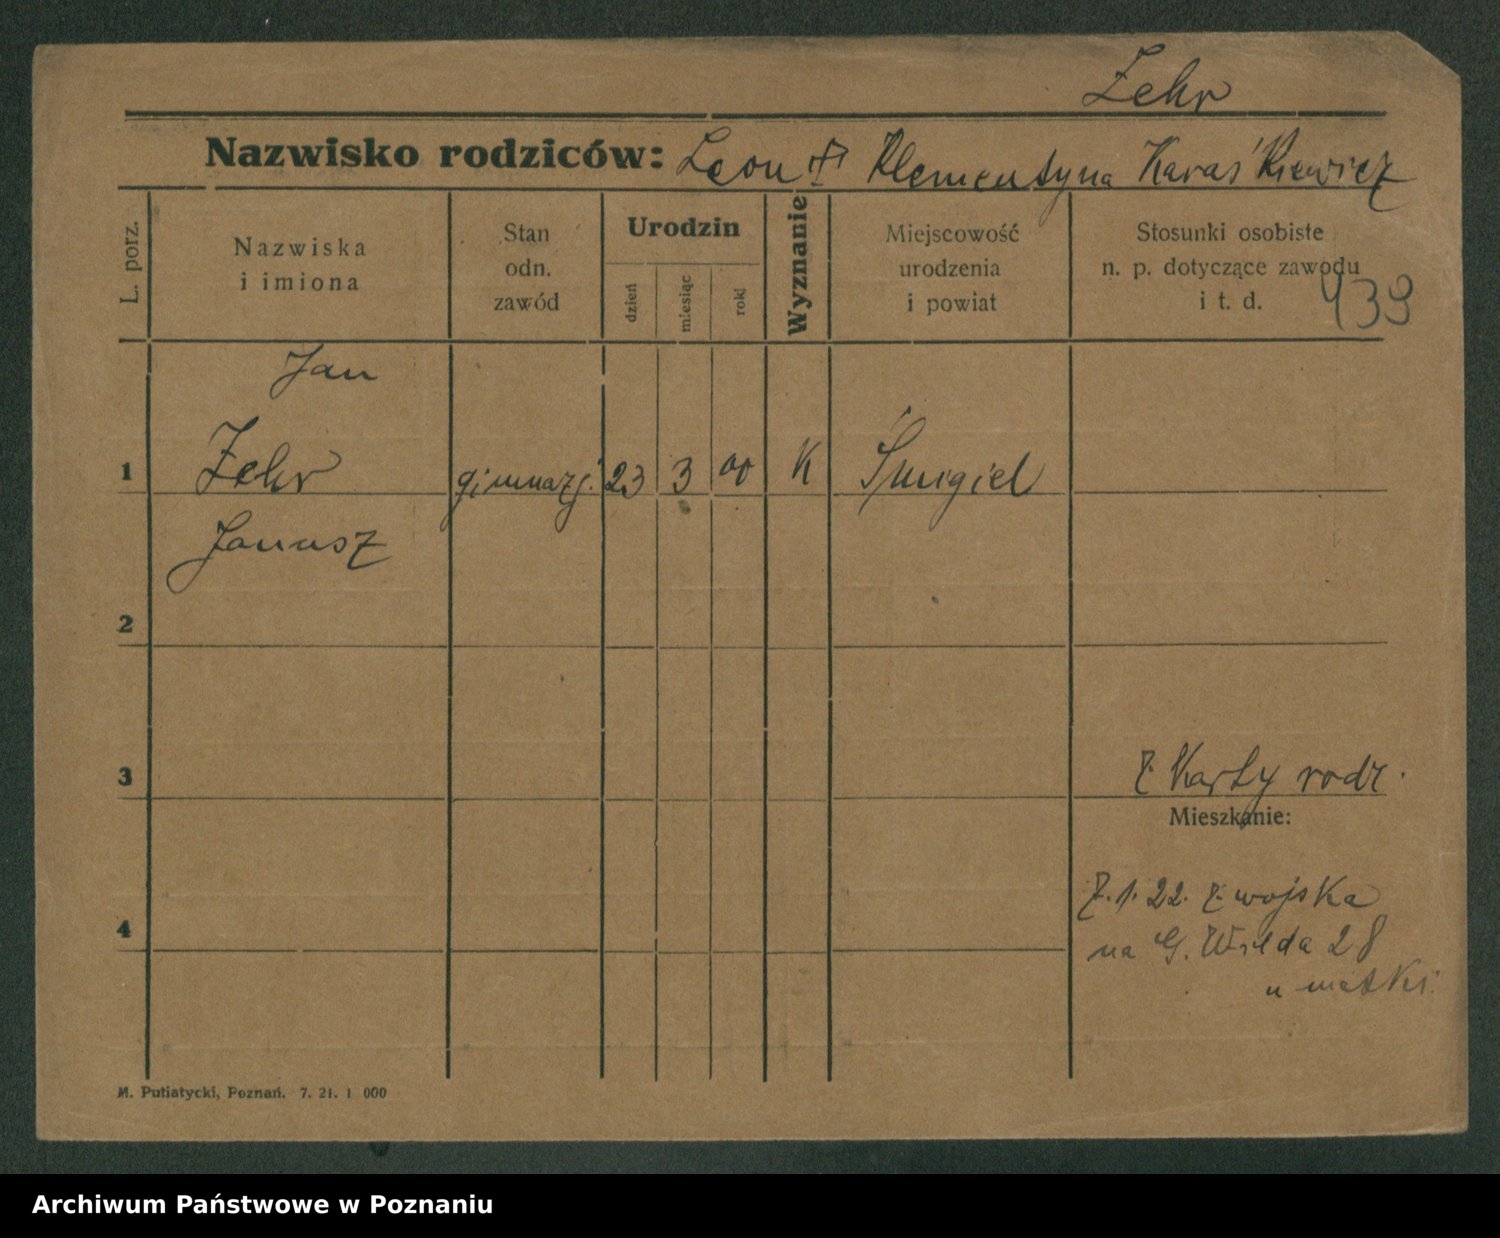 Zehr
Nazwisko rodziców: Leon Klementyna Karaśkiewicz
L. porz.
Nazwiska
i imiona
Stan
odn.
zawód
Urodzin
dzień
miesiąc
rok
Wyznanie
Miejscowość
urodzenia
i powiat
Stosunki osobiste
n. p. dotyczące zawodu
i t. d.
939
Jan
1 Zehr gimnazj. 23 3 00 K Śmigiel
Janusz
2
3
z Karty rodz.
Mieszkanie:
7.1.22. z wojska
4
na G. Wilda 28
u matki.
M. Putiatycki, Poznań. 7. 21. 1 000
Archiwum Państwowe w Poznaniu